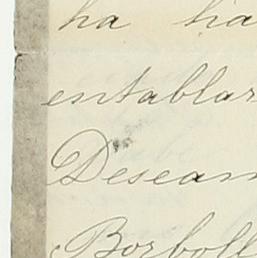 ha ha
entablar
Desean
Borboll